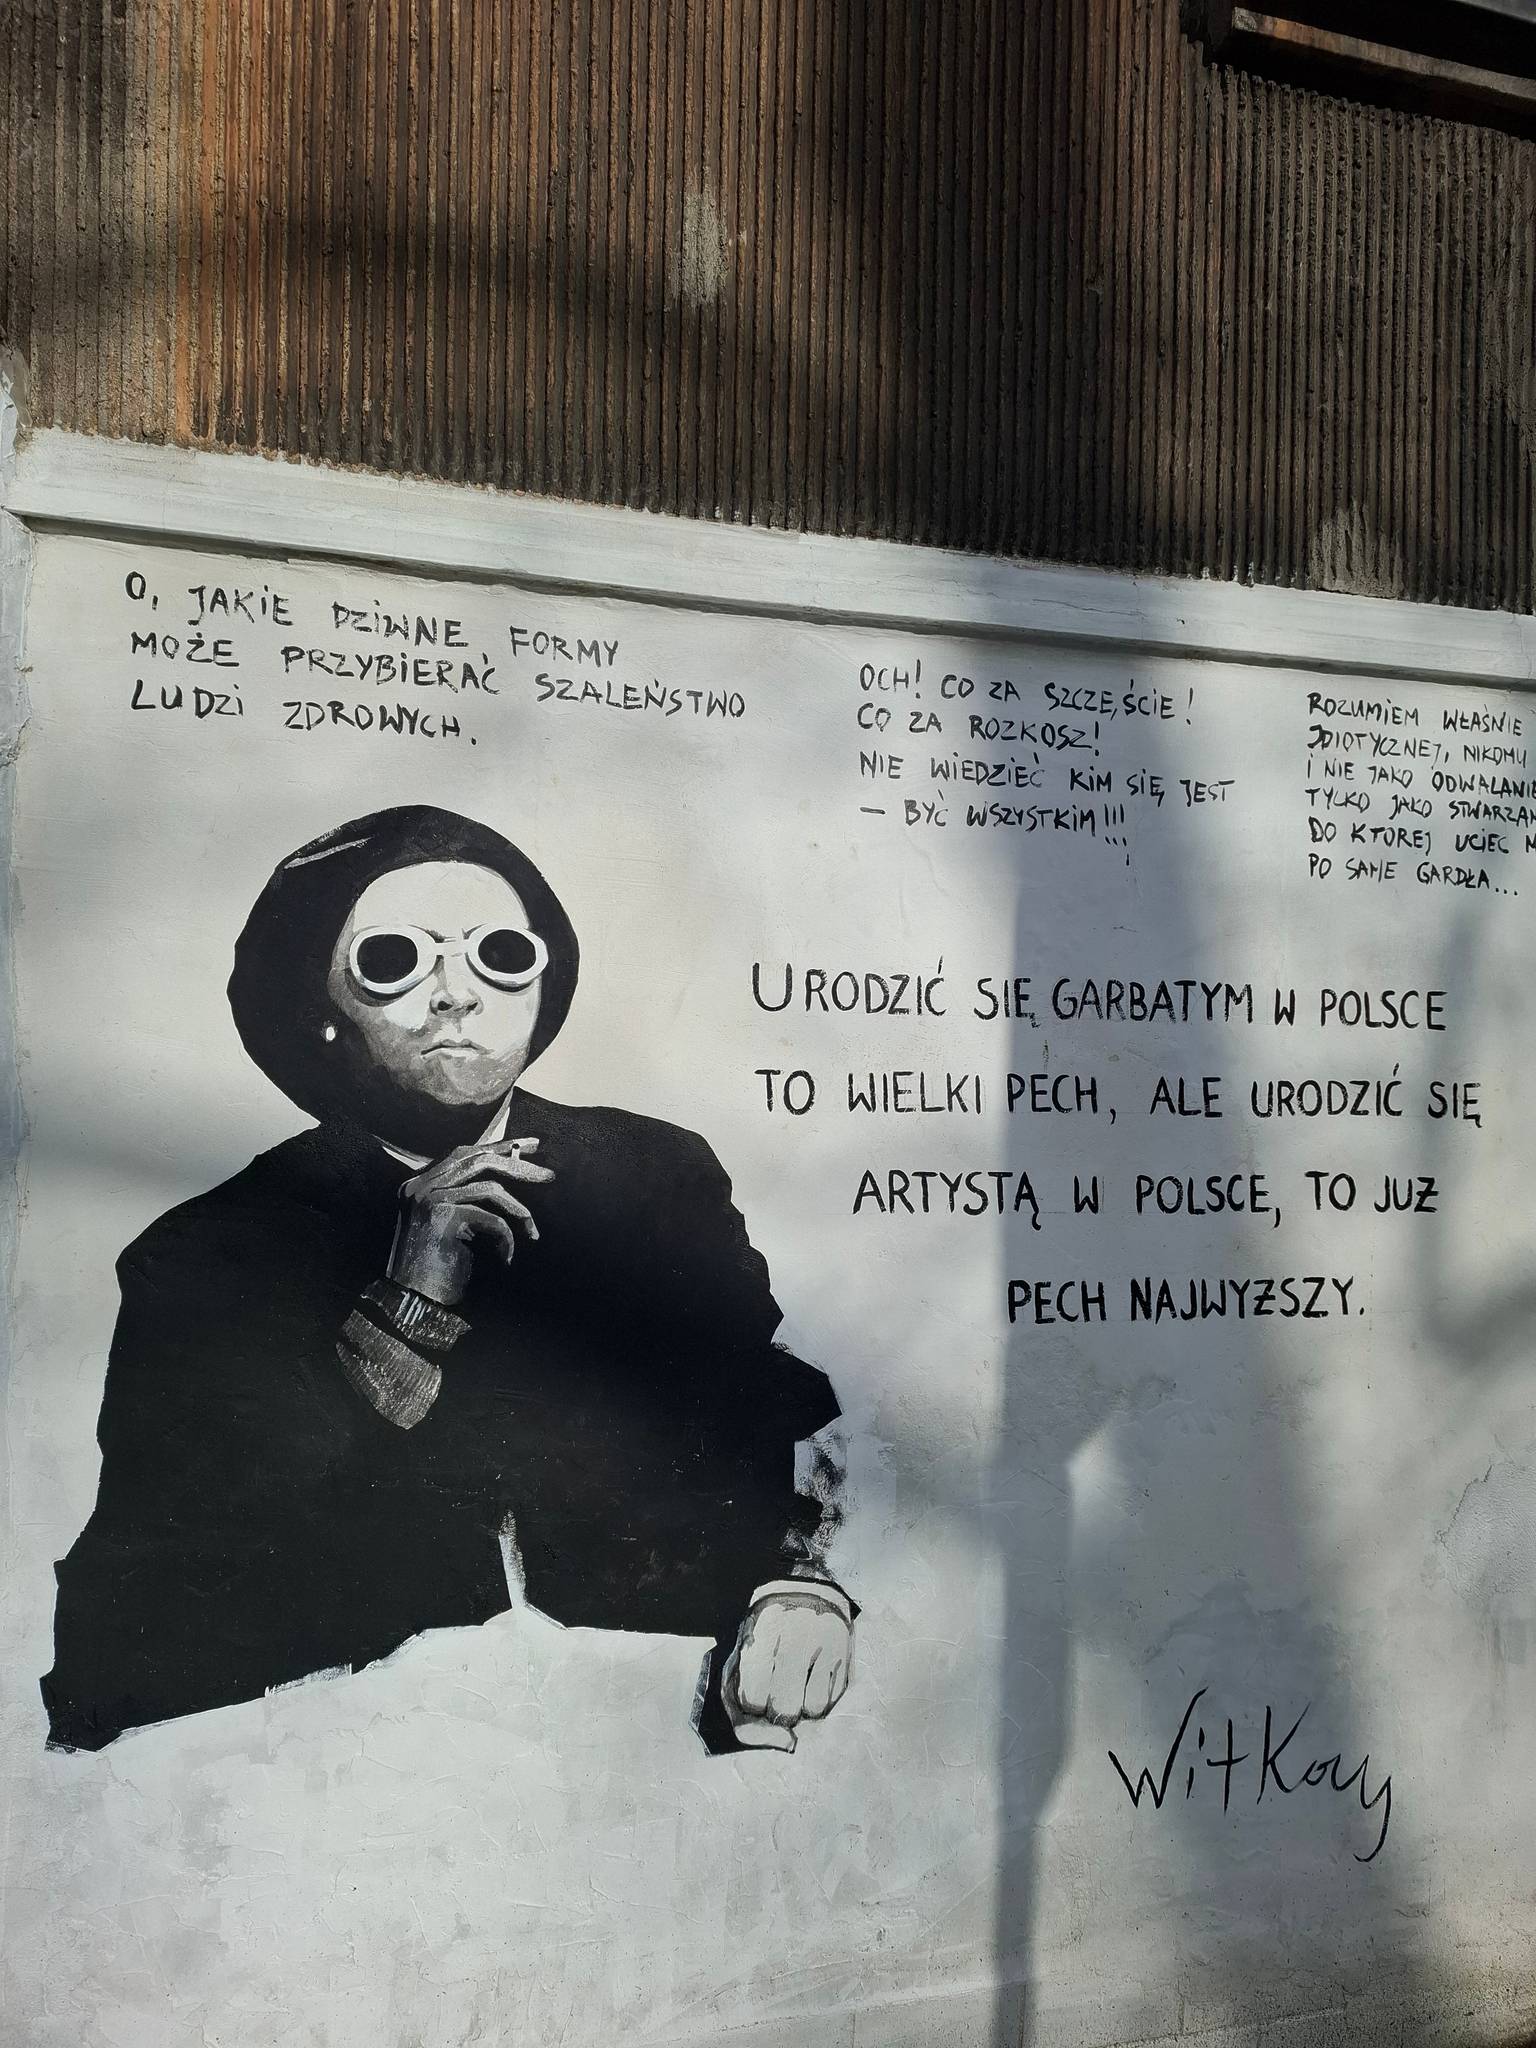 O, JAKIE DZIWNE FORMY
MOŻE PRZYBIERAĆ SZALEŃSTWO
LUDZI ZDROWYCH.
OCH! CO ZA SZCZĘŚCIE!
CO ZA ROZKOSZ!
NIE WIEDZIEĆ KIM SIĘ JEST
— BYĆ WSZYSTKIM!!!
ROZUMIEM WŁAŚNIE
IDIOTYCZNEJ, NIKOMU
I NIE JAKO ODWALANIE
TYLKO JAKO STWARZAN
DO KTOREJ UCIEC
PO SAME GARDŁA...
URODZIĆ SIĘ GARBATYM W POLSCE
TO WIELKI PECH, ALE URODZIĆ SIĘ
ARTYSTĄ W POLSCE, TO JUƵ
PECH NAJWYƵSZY.
Witkacy